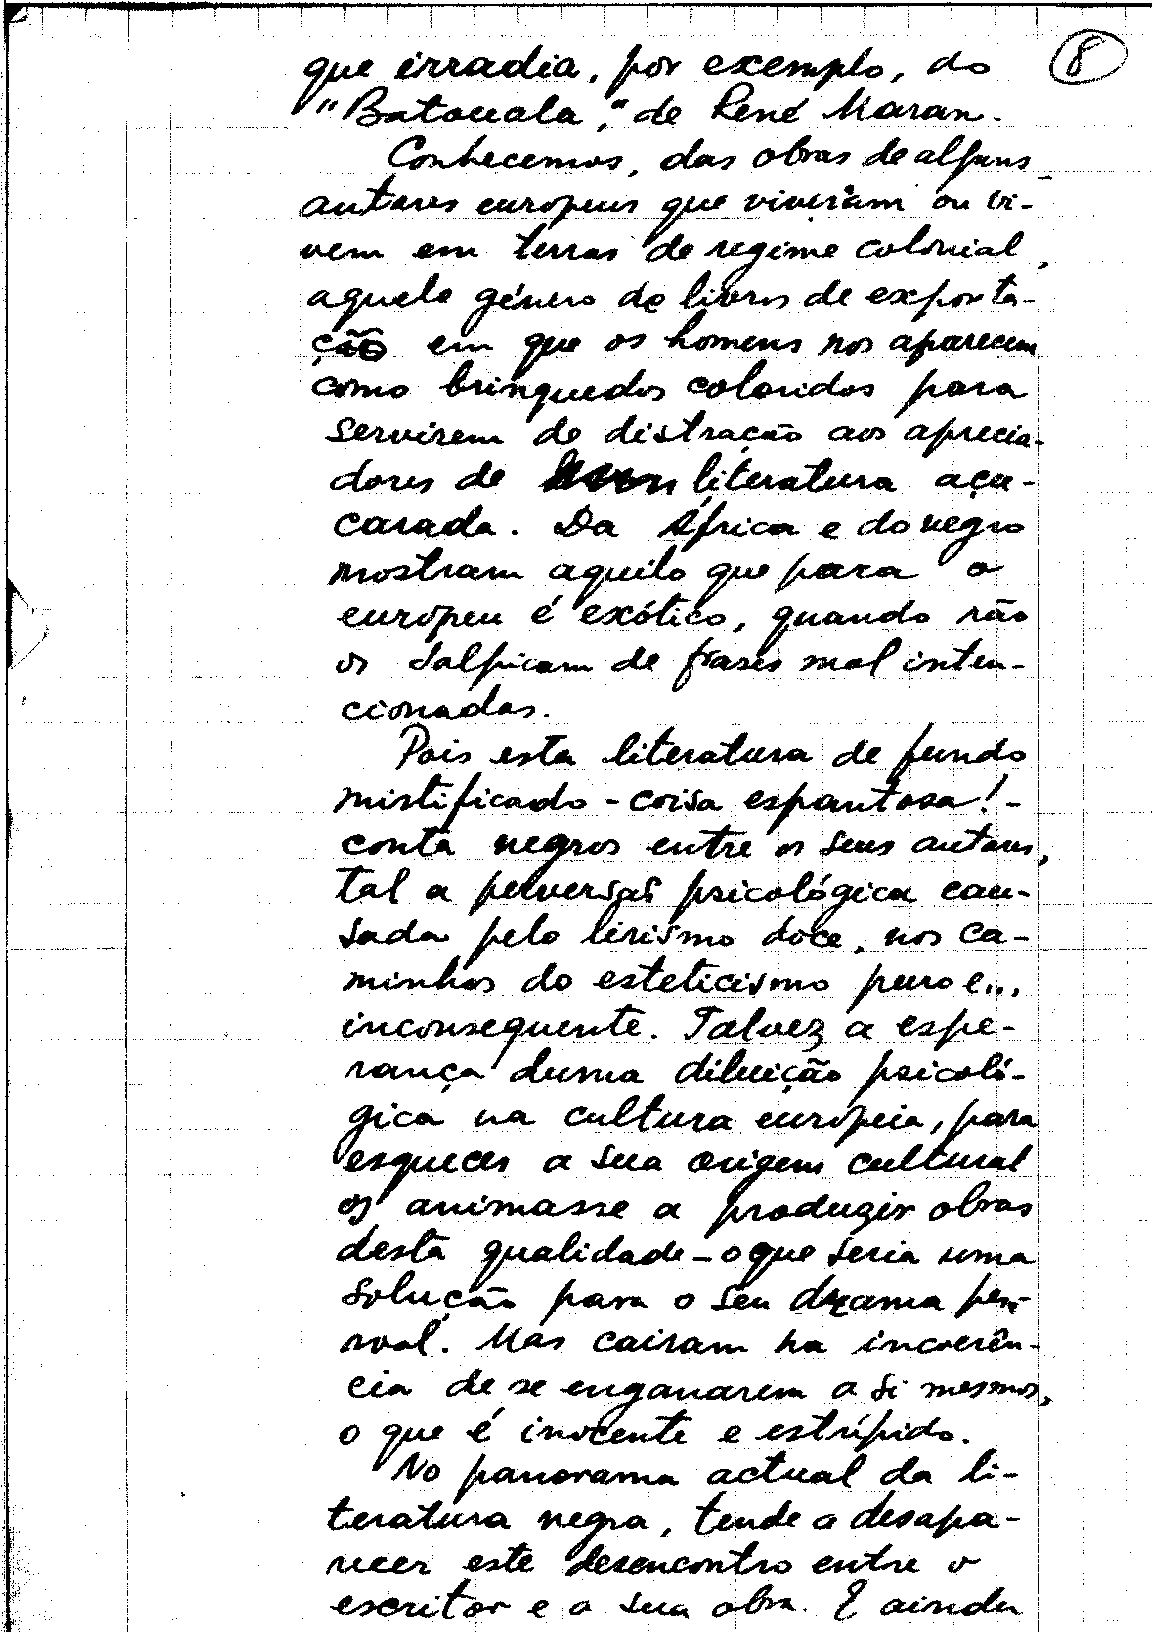 8
que irradia, por exemplo, do
"Batouala", de René Maran.
Conhecemos, das obras de alguns
autores europeus que viveram ou vi-
vem em terras de regime colonial,
aquele género de livros de exporta-
ção em que os homens nos aparecem
como brinquedos coloridos para
servirem de distração aos aprecia-
dores de literatura açu-
carada. Da África e do negro
mostram aquilo que para o
europeu é exótico, quando não
os salpicam de frases mal inten-
cionadas.
Pois esta literatura de fundo
mistificado - coisa espantosa! -
conta negros entre os seus autores,
tal a psicológica cau-
sada pelo lirismo doce, nos ca-
minhos do esteticismo puro e...
inconsequente. Talvez a espe-
rança duma diluição psicoló-
gica na cultura europeia, para
esquecer a sua origem cultural
os animasse a produzir obras
desta qualidade - o que seria uma
solução para o seu drama pes-
soal. Mas cairam na incoerên-
cia de se enganarem a si mesmos,
o que é inocente e estúpido.
No panorama actual da li-
teratura negra, tende a desapa-
recer este desencontro entre o
escritor e a sua obra. E ainda